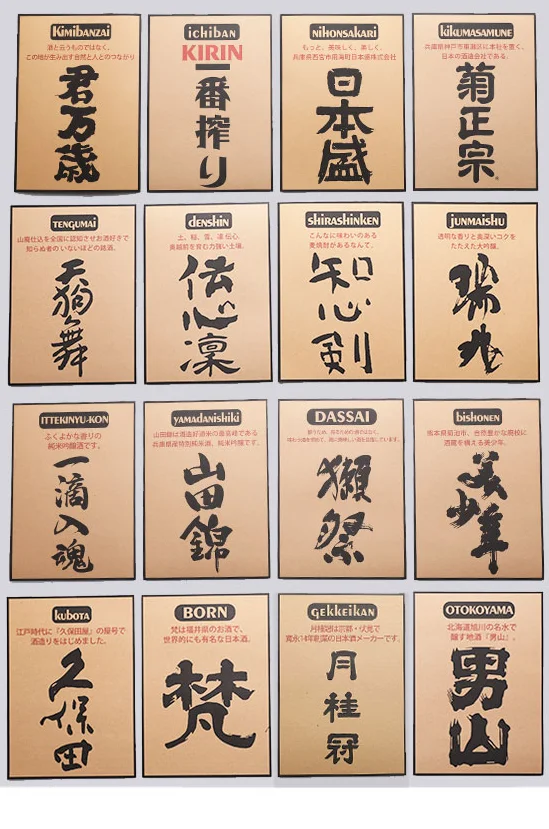 Kimibanzai
酒と云うものではなく、
この地が生み出す自然と人とのつながり
君万歳
ichiban
KIRIN
一番搾り
NIHONSAKARI
もっと、美味しく、楽しく、
兵庫県西宮市用海町日本盛株式会社
日本盛
KIKUMASAMUNE
兵庫県神戸市東灘区に本社を置く、
日本の酒造会社である。
菊正宗
TENGUMAI
山廃仕込を全国に認知させお酒好きで
知らぬ者のいないほどの銘酒。
天狗舞
denshin
土、稲、雪、凛 伝心、
奥越前を育む力強い土壌。
伝心凛
SHIRASHINKEN
こんなに味わいのある
麦焼酎があるなんて。
知心剣
JUNMAISHU
透明な香りと奥深いコクを
たたえた大吟醸。
瑞兆
ITTEKINYU-KON
ふくよかな香りの
純米吟醸酒です。
一滴入魂
YAMADANISHIKI
山田錦は酒造好適米の最高峰である
兵庫県産特別純米酒、純米吟醸酒です。
山田錦
DASSAI
獺祭
bishonen
熊本県菊池市、自然豊かな廃校に
酒蔵を構える美少年。
美少年
KUBOTA
江戸時代に『久保田屋』の屋号で
酒造りをはじめました。
久保田
BORN
梵は福井県のお酒で、
世界的にも有名な日本酒。
梵
GEKKEIKAN
月桂冠は京都・伏見で
寛永14年創業の日本酒メーカーです。
月桂冠
OTOKOYAMA
北海道旭川の名水で
醸す地酒『男山』。
男山